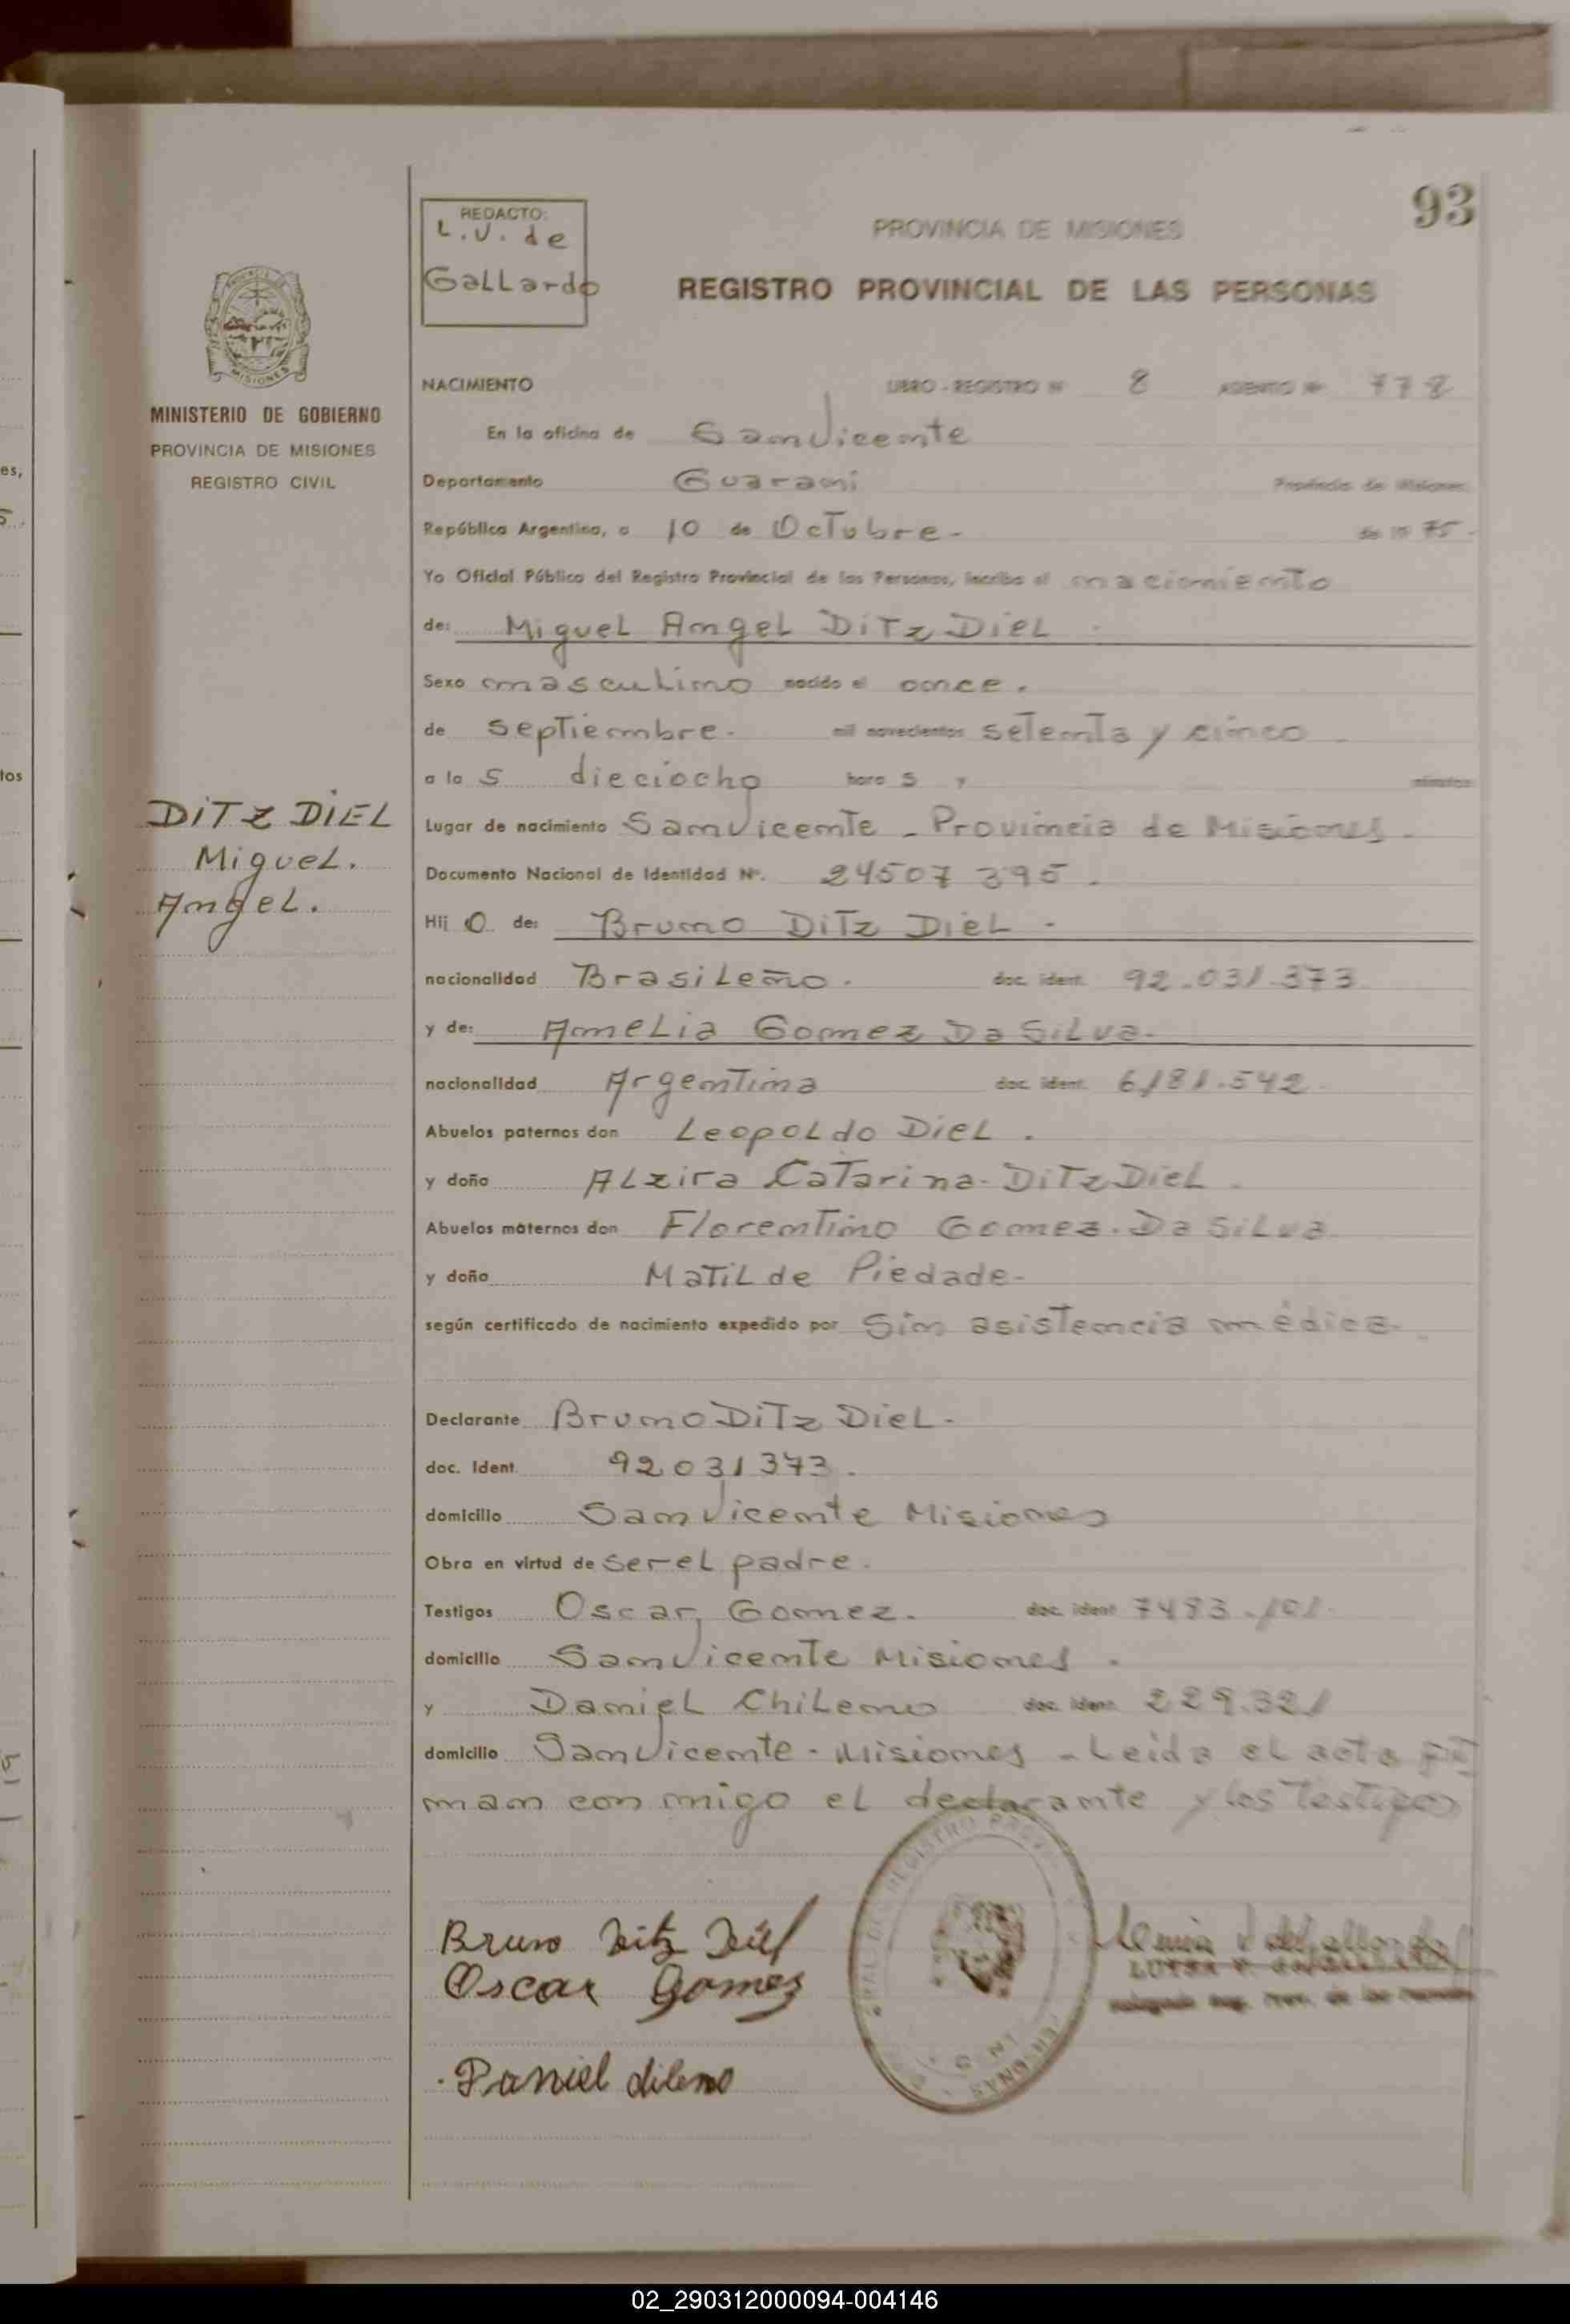 93
REDACTO:
L.V. de
Gallardo
PROVINCIA DE MISIONES
REGISTRO PROVINCIAL DE LAS PERSONAS
MISIONES
MINISTERIO DE GOBIERNO
PROVINCIA DE MISIONES
REGISTRO CIVIL
DITZ DIEL
Miguel.
Angel.
NACIMIENTO LIBRO - REGISTRO Nº 8 ASIENTO Nº 778
En la oficina de San Vicente
Departamento Guarani Provincia de Misiones
República Argentina, a 10 de Octubre - de 19 75 -
Yo Oficial Público del Registro Provincial de las Personas, inscribo el nacimiento
de: Miguel Angel Ditz Diel -
Sexo masculino nacido el once.
de septiembre. mil novecientos setenta y cinco -
a las dieciocho horas y minutos
Lugar de nacimiento San Vicente - Provincia de Misiones.
Documento Nacional de Identidad Nº. 24507 395.
Hijo de: Bruno Ditz Diel -
nacionalidad Brasileño. doc. ident. 92.031.373
y de: Amelia Gomez Da Silva.
nacionalidad Argentina doc. ident. 6181.542.
Abuelos paternos don Leopoldo Diel.
y doña Alzira Catarina Ditz Diel.
Abuelos maternos don Florentino Gomez Da Silva
y doña Matilde Piedade-
según certificado de nacimiento expedido por Sin asistencia médica.
Declarante Bruno Ditz Diel-
doc. Ident. 92 031 373.
domicilio San Vicente Misiones
Obra en virtud de ser el padre.
Testigos Oscar Gomez. doc. ident. 7483.101.
domicilio San Vicente Misiones.
y Daniel Chileno doc. ident. 229.321
domicilio San Vicente - Misiones - Leida el acta fir
man con migo el declarante y los testigos
Bruno Ditz Diel
Oscar Gomez
Daniel dileno
LUISA V. GALLARDO
02_290312000094-004146